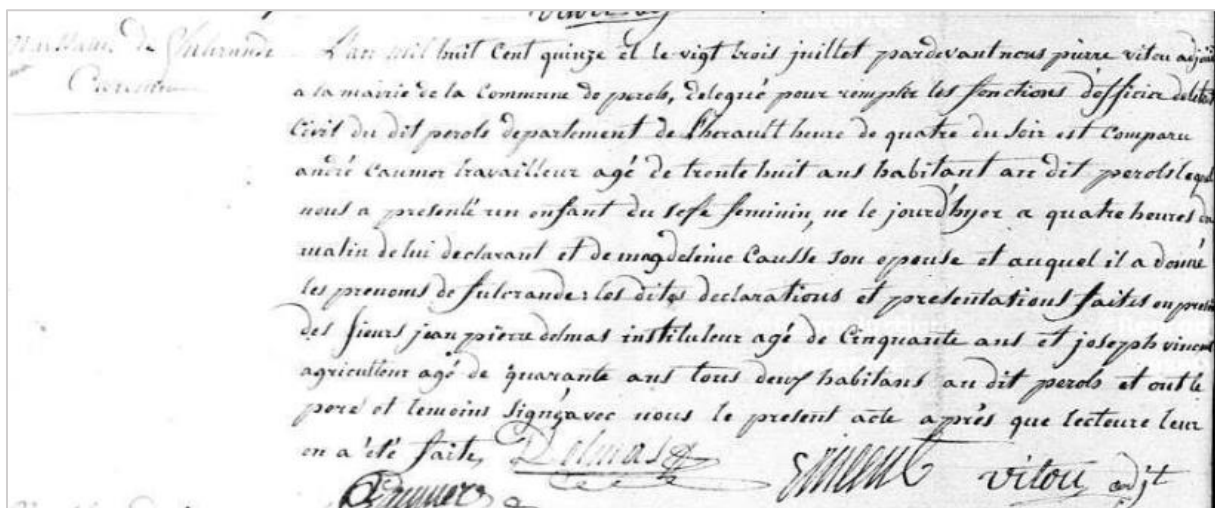 Naissance de Fulcrande
L'an mil huit Cent quinze et le vigt trois juillet pardevant nous pierre vitou adjoint
a la mairie de la Commune de perols, delegué pour remplir les fonctions d'officier de l'etat
Civil du dit perols departement de l'herault heure de quatre du soir est Comparu
andré Caumer travailleur agé de trente huit ans habitant au dit perols lequel
nous a presenté un enfant du sexe feminin, ne le jourd'hyer a quatre heures du
matin de lui declarant et de magdeleine Causse son epouse et auquel il a donné
les prenoms de fulcrande; les dites declarations et presentations faites en
des sieurs jean pierre delmas instituteur agé de Cinquante ans et joseph vincent
agriculteur agé de quarante ans tous deux habitans au dit perols et ont le
pere et temoins signé avec nous le present acte après que lecteure leur
en a été faite, Delmas Vincent vitou adjt